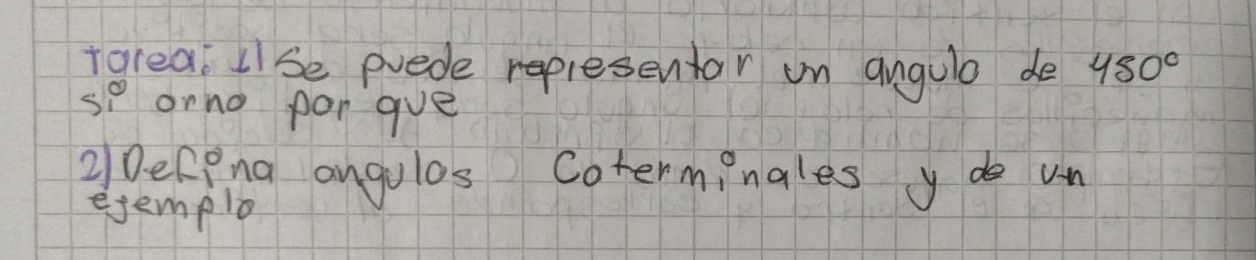 tarea: 1) Se puede representar un angulo de 450°
si orno por que
2) Defina angulos Coterminales y de un
ejemplo